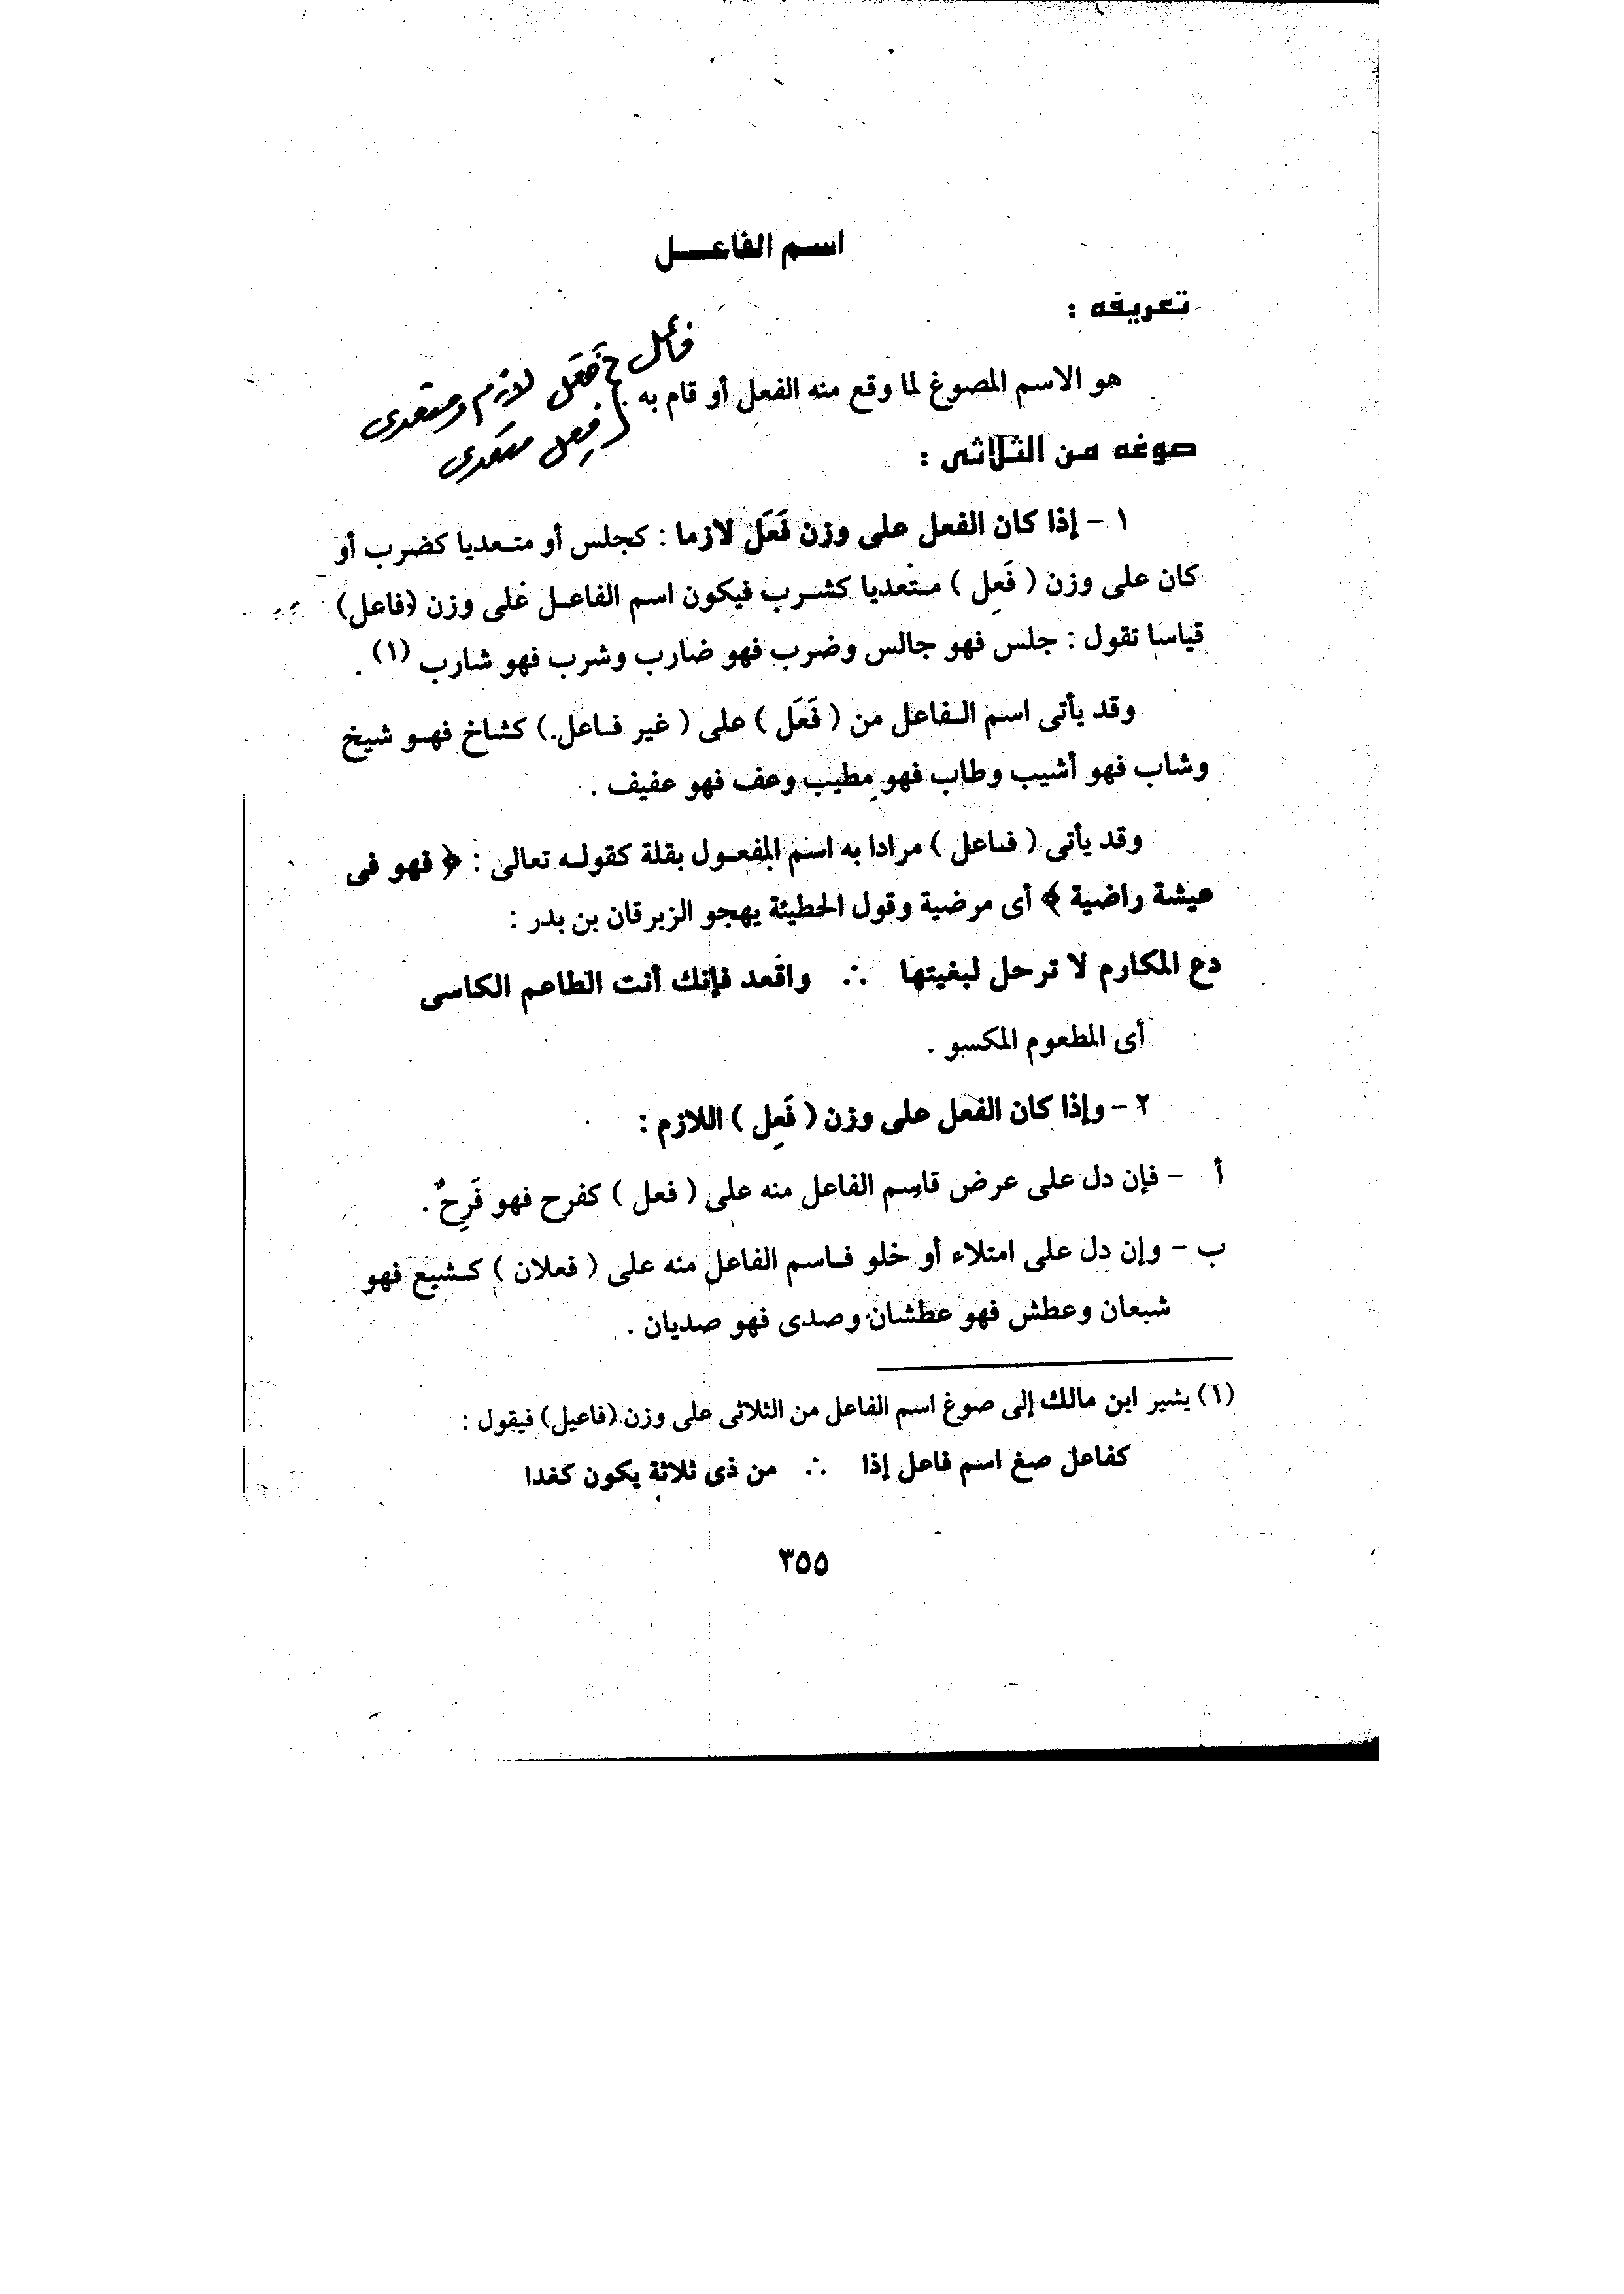 اسم الفاعل
تعريفه :
هو الاسم المصوغ لما وقع منه الفعل أو قام به .
فاعل
فَعَل لازم ومتعدى
فعِل متعدى
صوغه من الثلاثى :
١ - إذا كان الفعل على وزن فَعَل لازما : كجلس أو متعديا كضرب أو
كان على وزن ( فَعِل ) متعديا كشرب فيكون اسم الفاعل على وزن (فاعل)
قياسا تقول : جلس فهو جالس وضرب فهو ضارب وشرب فهو شارب (١) .
وقد يأتى اسم الفاعل من ( فَعَل ) على ( غير فاعل ) كشاخ فهو شيخ
وشاب فهو أشيب وطاب فهو مطيب وعف فهو عفيف .
وقد يأتى ( فاعل ) مرادا به اسم المفعول بقلة كقوله تعالى : ﴿ فهو فى
عيشة راضية ﴾ أى مرضية وقول الحطيئة يهجو الزبرقان بن بدر :
دع المكارم لا ترحل لبغيتها ∴ واقعد فإنك أنت الطاعم الكاسى
أى المطعوم المكسو .
٢ - وإذا كان الفعل على وزن ( فَعِل ) اللازم :
أ - فإن دل على عرض فاسم الفاعل منه على ( فعل ) كفرح فهو فَرِحٌ .
ب - وإن دل على امتلاء أو خلو فاسم الفاعل منه على ( فعلان ) كشبع فهو
شبعان وعطش فهو عطشان وصدى فهو صديان .
(١) يشير ابن مالك إلى صوغ اسم الفاعل من الثلاثى على وزن (فاعيل) فيقول :
كفاعل صغ اسم فاعل إذا ∴ من ذى ثلاثة يكون كغدا
٣٥٥